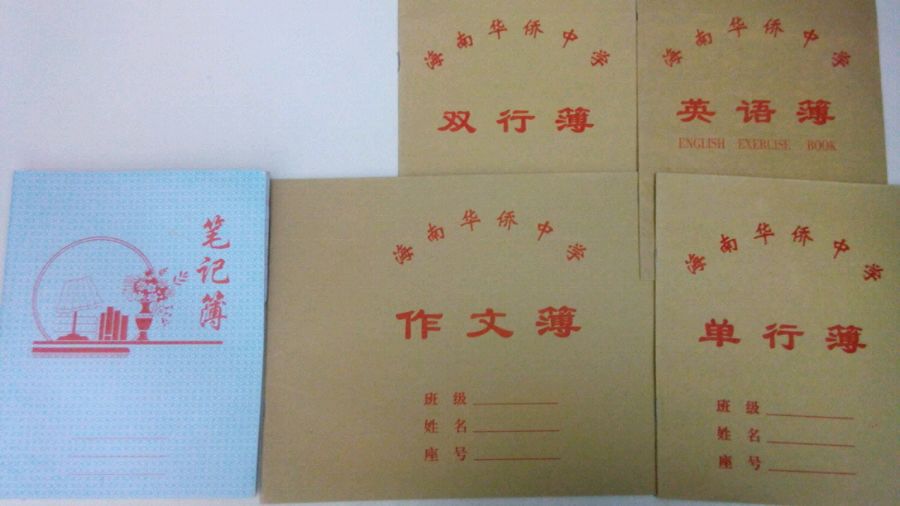 海南华侨中学
双行簿
海南华侨中学
英语簿
ENGLISH EXERCISE BOOK
笔记簿
海南华侨中学
作文簿
班级
姓名
座号
海南华侨中学
单行簿
班级
姓名
座号